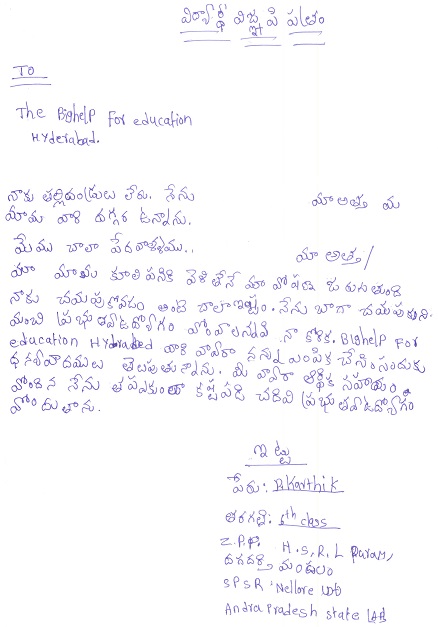 విద్యార్థి విజ్ఞప్తి పత్రం
TO
The Bighelp For education
Hyderabad.
నాకు తల్లిదండ్రులు లేరు. నేను మా అత్త మ
మామ వారి దగ్గర ఉన్నాను.
మేము చాలా పేదవాళ్ళము.. మా అత్త/
మా మామ కూలి పనికి వెళితేనే మా పోషణ జరుగుతుంది
నాకు చదువుకోవడం అంటే చాలా ఇష్టం. నేను బాగా చదువుకుని
మంచి ప్రభుత్వఉద్యోగం పోందాలన్నది నా కోరిక. BigHelP For
education Hyderabad వారి ద్వారా నన్ను ఎంపిక చేసినందుకు
ధన్యవాదములు తెలుపుతున్నాను. మీ ద్వారా ఆర్థిక సహాయం
పోందిన నేను తప్పకుండా కష్టపడి చదివి ప్రభుత్వఉద్యోగం
పోందుతాను.
ఇట్లు
పేరు: Karthik
తరగతి: th class
Z.P.P. H.S, R. L Puram,
దగదర్తి మండలం
SPSR Nellore
Andra Pradesh state (AP)